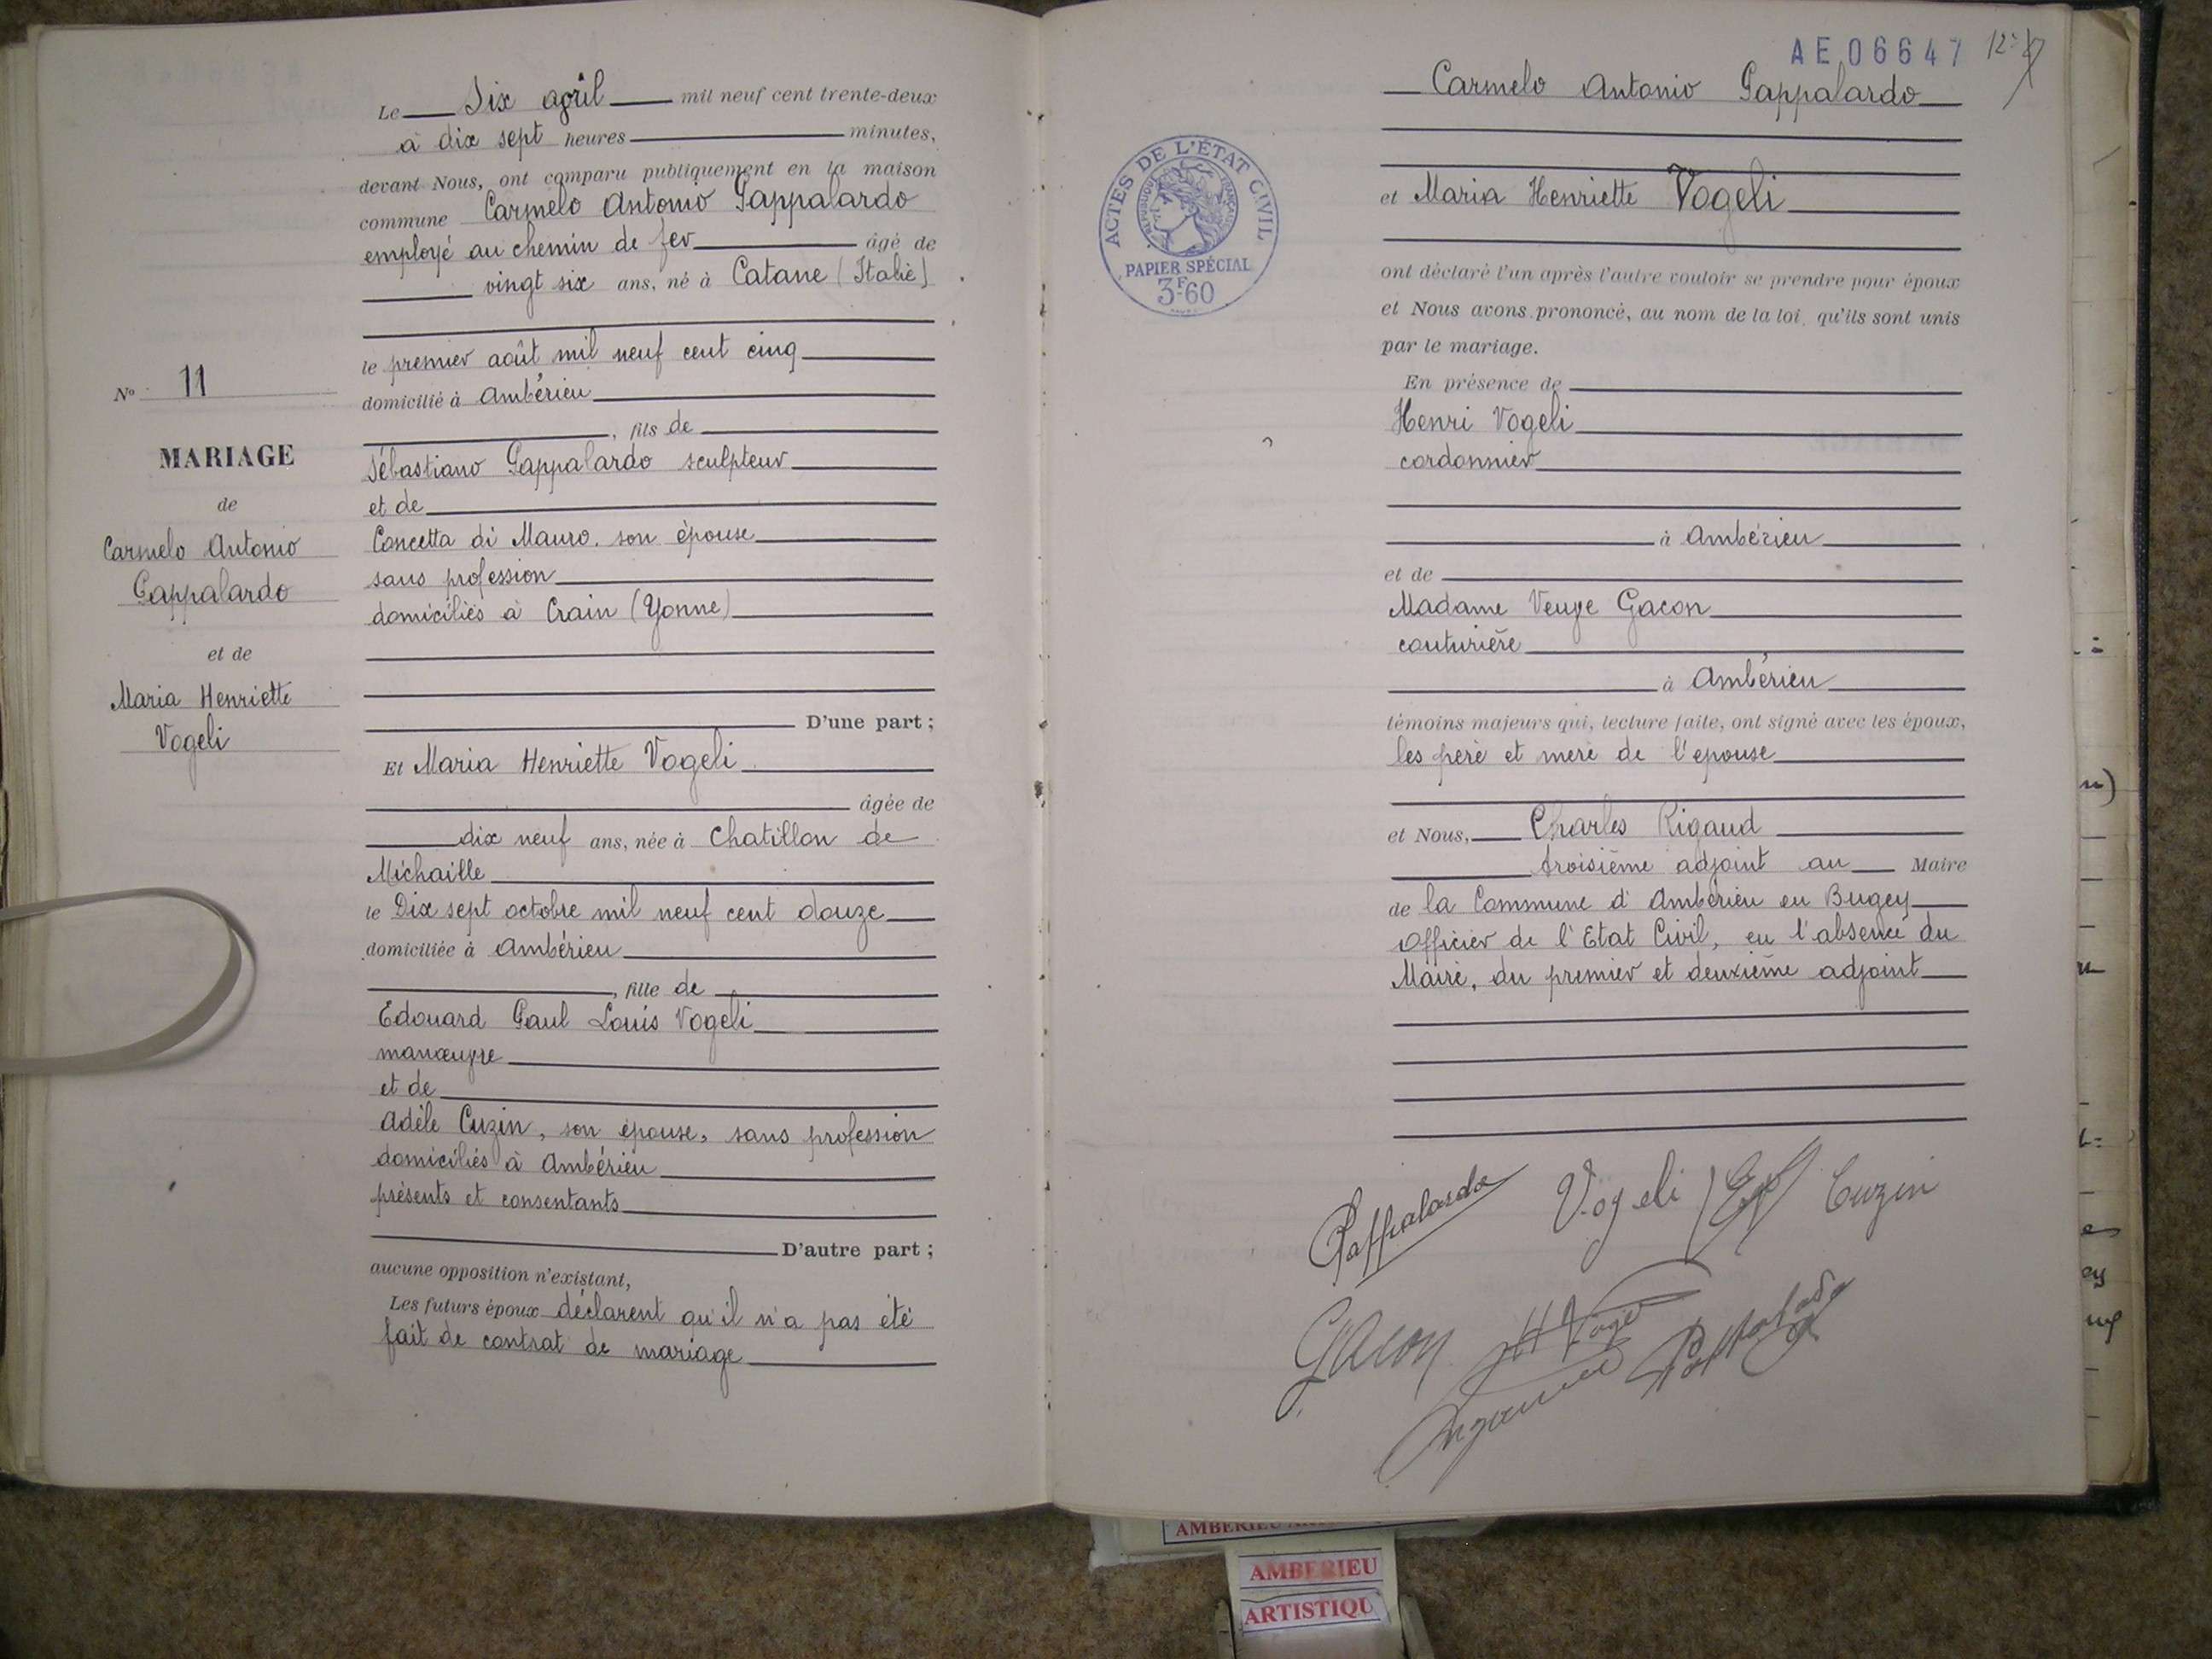 N° 11
MARIAGE
de
Carmelo Antonio
Pappalardo
et de
Maria Henriette
Vogeli
Le Six avril mil neuf cent trente-deux
à dix sept heures minutes,
devant Nous, ont comparu publiquement en la maison
commune Carmelo Antonio Pappalardo
employé au chemin de fer âgé de
vingt six ans, né à Catane (Italie)
le premier août mil neuf cent cinq
domicilié à Ambérieu
, fils de
Sébastiano Pappalardo sculpteur
et de
Concetta di Mauro. son épouse
sans profession
domiciliés à Crain (Yonne)
D'une part ;
Et Maria Henriette Vogeli
âgée de
dix neuf ans, née à Chatillon de
Michaille
le Dix sept octobre mil neuf cent douze
domiciliée à Ambérieu
, fille de
Edouard Paul Louis Vogeli
manœuvre
et de
Adèle Cuzin, son épouse, sans profession
domiciliés à Ambérieu
présents et consentants
D'autre part ;
aucune opposition n'existant,
Les futurs époux déclarent qu'il n'a pas été
fait de contrat de mariage
AE06647
Carmelo Antonio Pappalardo
ACTES DE L'ÉTAT CIVIL
RÉPUBLIQUE FRANÇAISE
PAPIER SPÉCIAL
3F60
et Maria Henriette Vogeli
ont déclaré l'un après l'autre vouloir se prendre pour époux
et Nous avons prononcé, au nom de la loi, qu'ils sont unis
par le mariage.
En présence de
Henri Vogeli
cordonnier
à Ambérieu
et de
Madame Veuve Gacon
couturière
à Ambérieu
témoins majeurs qui, lecture faite, ont signé avec les époux,
les père et mère de l'epouse
et Nous, Charles Rigaud
troisième adjoint au Maire
de la Commune d'Ambérieu en Bugey
Officier de l'Etat Civil, en l'absence du
Maire, du premier et deuxième adjoint
Pappalardo Vogeli Cuzin
Gacon
AMBERIEU
ARTISTIQU